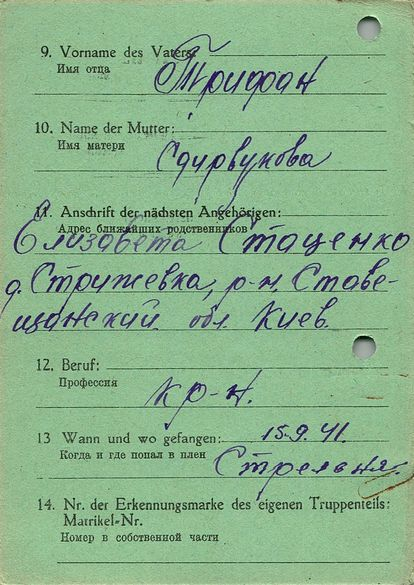 9. Vorname des Vaters:
Имя отца
Трифан
10. Name der Mutter:
Имя матери
11. Anschrift der nächsten Angehörigen:
Адрес ближайших родственников
Елизавета Стаценко
д. Стрижевка, р-н. Стави-
щанский обл. Киев.
12. Beruf:
Профессия
кр-н.
13 Wann und wo gefangen: 15.9.41.
Когда и где попал в плен
14. Nr. der Erkennungsmarke des eigenen Truppenteils:
Matrikel-Nr.
Номер в собственной части